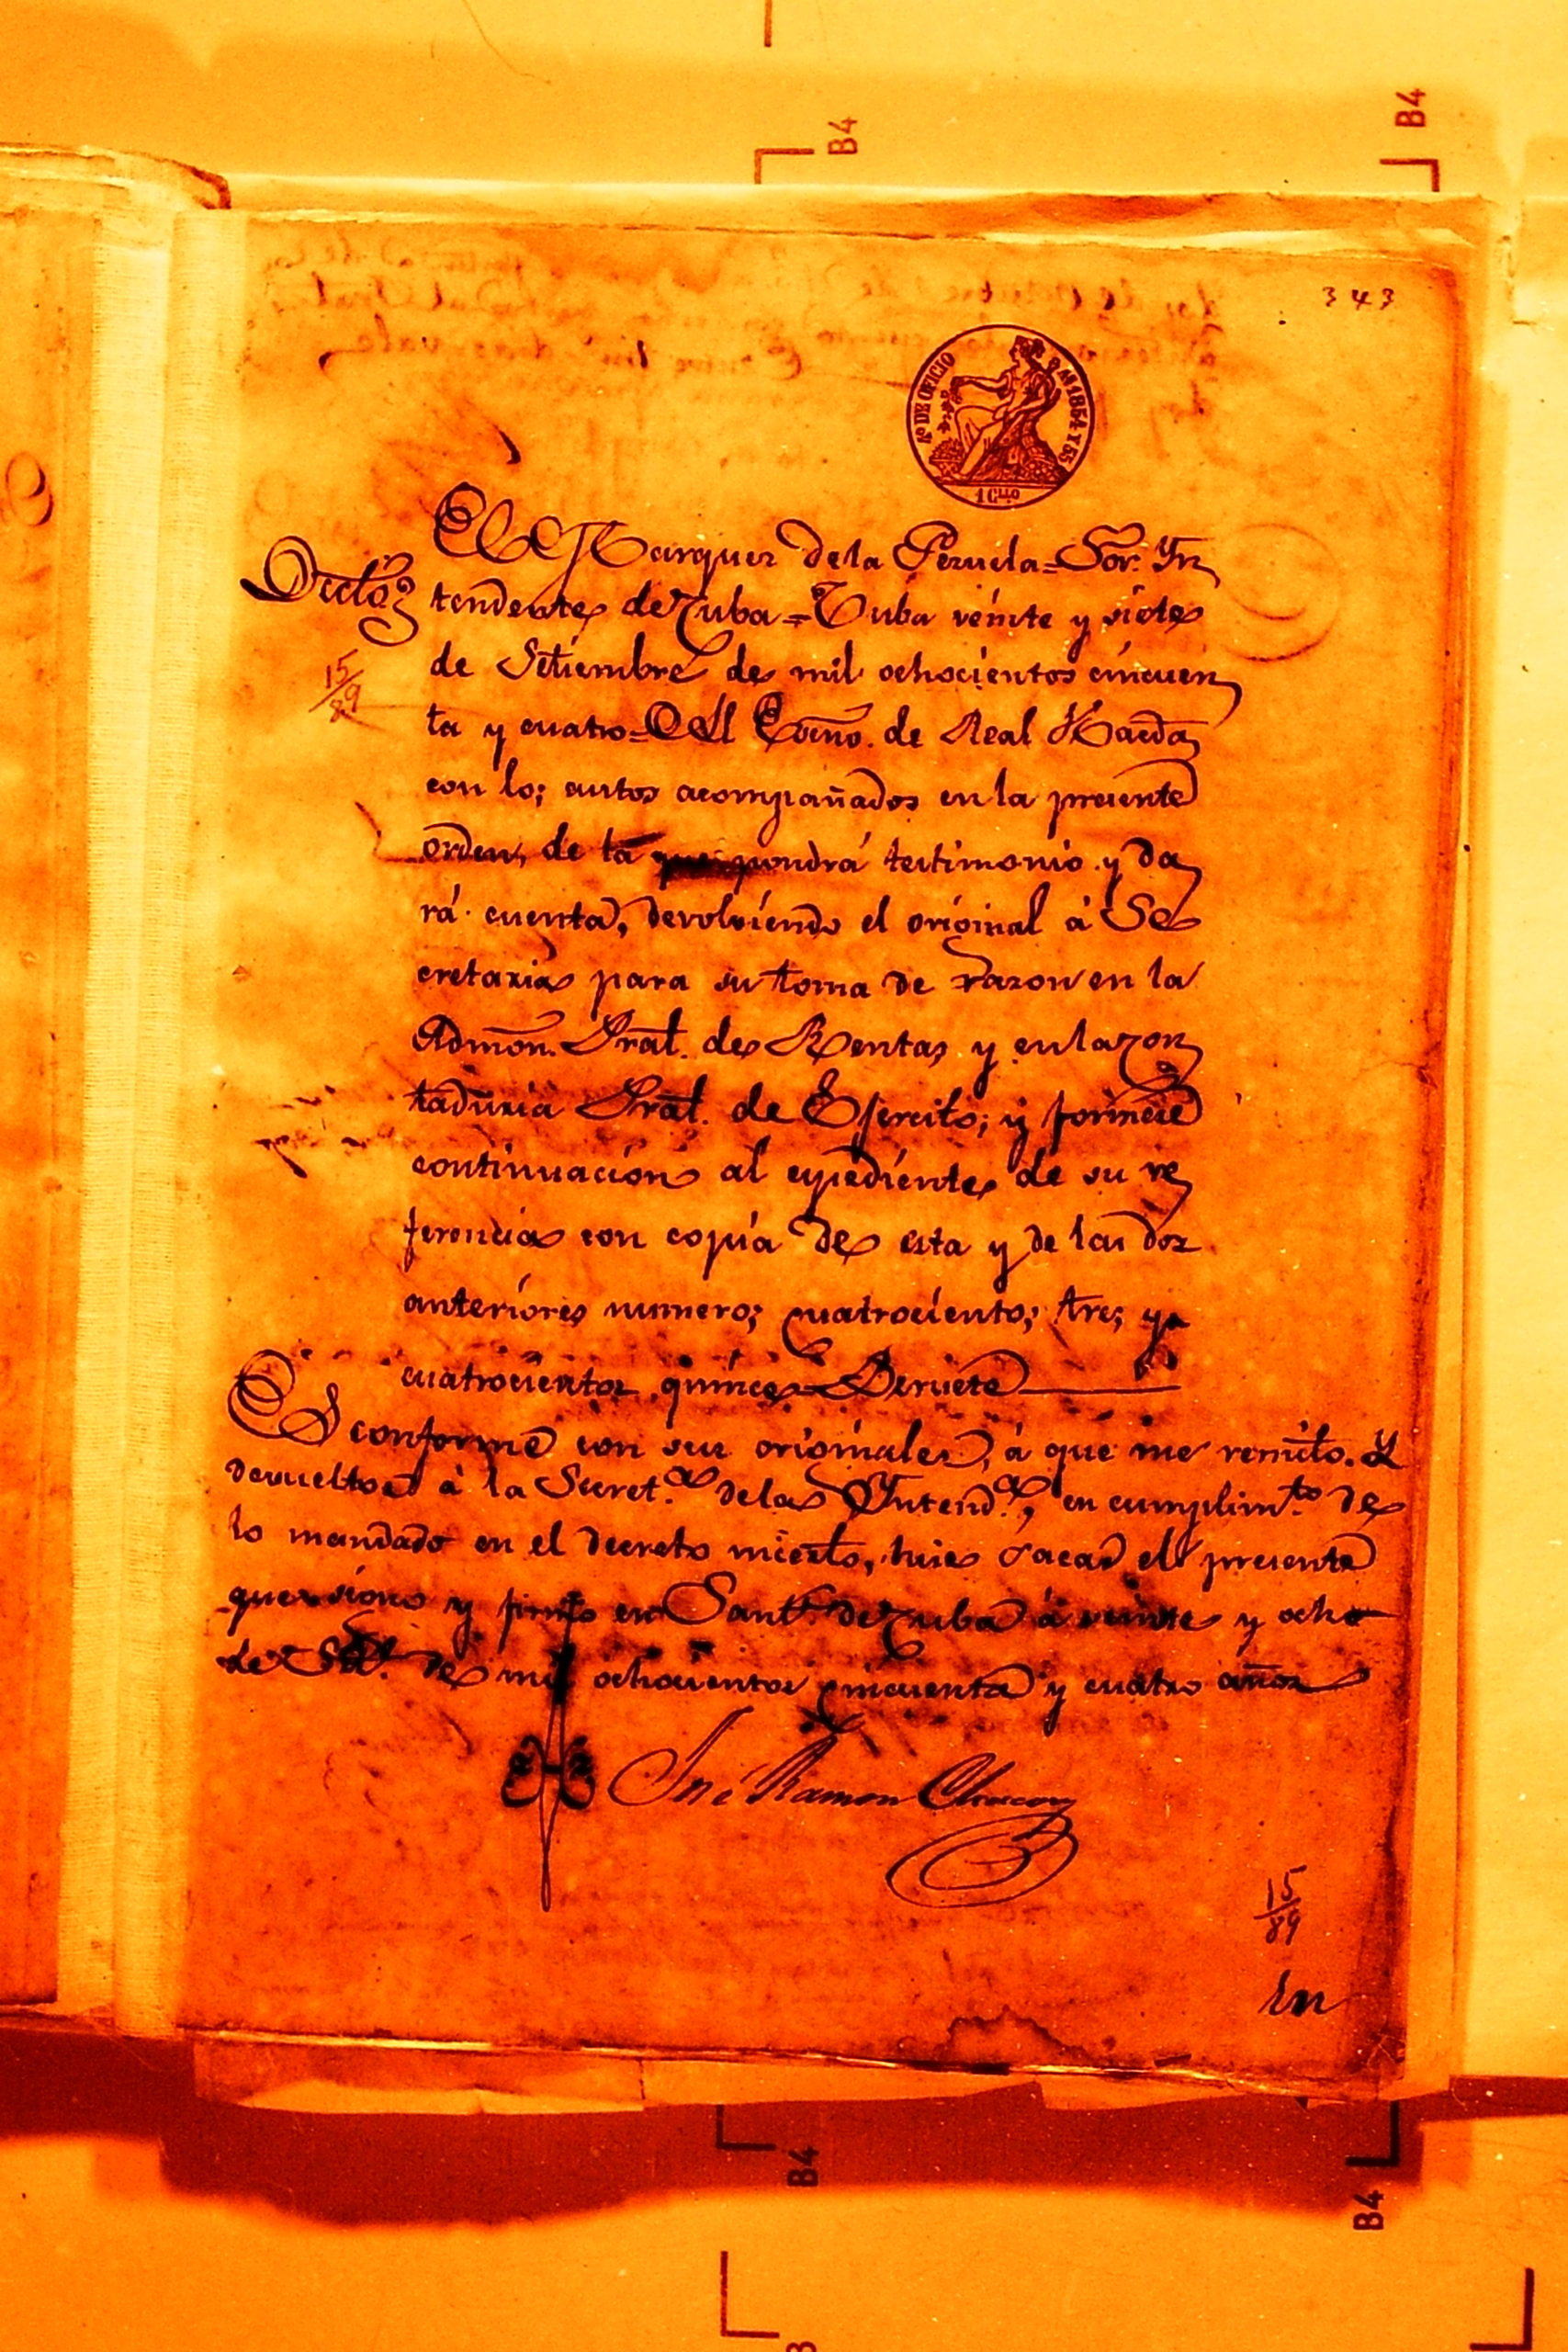 B4
B4
343
Aº DE OFICIO
AS 1854 Y 55
1 Cllo
El Marques de la Pezuela = Sor. Yn
Decto
tendente de Cuba = Cuba veinte y siete
de Setiembre de mil ochocientos cincuen
15/89
ta y cuatro = Al Escno. de Real Hacda
con los autos acompañados en la presente
orden, de la pondrá testimonio y da
rá cuenta, devolviendo el original á Se
cretaria para su toma de razon en la
Admon. Gral. de Rentas y en la Con
taduria Gral. de Ejercito; y formese
continuacion al espediente de su re
ferencia con copia de esta y de las dos
anteriores numeros cuatrocientos tres y
cuatrocientos quince =
Es conforme con sus originales, á que me remito. Y
devueltos á la Secret.a de la Yntend.a, en cumplim.to de
lo mandado en el decreto incerto, hice sacar el presente
que signo y firmo en Sant.o de Cuba á veinte y ocho
de Set.e de mil ochocientos cincuenta y cuatro años
José Ramon
15/89
B4
B4